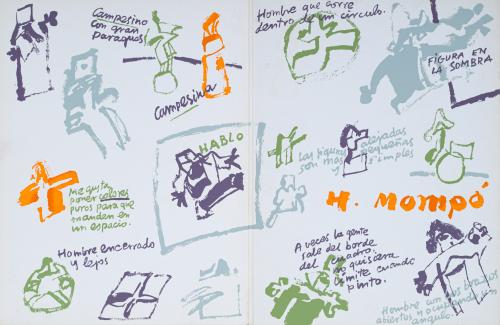 Campesino
con gran
paraguas
Campesina
Hombre que corre
dentro de un círculo.
FIGURA EN
LA SOMBRA
HABLO
Las figuras alejadas
son mas pequeñas
y simples
Me gusta
poner colores
puros para que
manden en
un espacio.
H. Mompó
Hombre encerrado
y lejos
A veces la gente
sale del borde
del cuadro,
no quisiera
límite cuando
pinto.
Hombre con los brazos
abiertos y ocupando un
angulo.